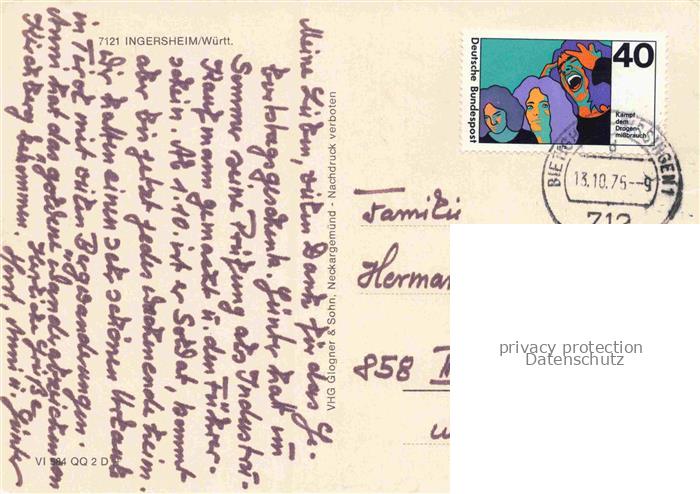 7121 INGERSHEIM/Württ.
Meine Lieben, vielen Dank für das Ge-
burtstagsgeschenk. Günter hat im
Sommer seine Prüfung als Industrie-
Kaufmann gemacht u. den Führer-
schein. Ab 1.10. ist er Soldat, kommt
aber bis jetzt jedes Wochenende heim.
Wir hatten einen sehr schönen Urlaub
in Tirol mit vielen Bergwanderungen.
Anni hat das goldene Wanderabzeichen
bekommen. Herzliche Grüße
Horst, Anni u. Günter
VI 984 QQ 2 D
VHG Glogner & Sohn, Neckargemünd - Nachdruck verboten
Deutsche Bundespost
40
Kampf
dem
Drogen-
mißbrauch
13.10.76--9
712
Familie
Herman
858
privacy protection
Datenschutz